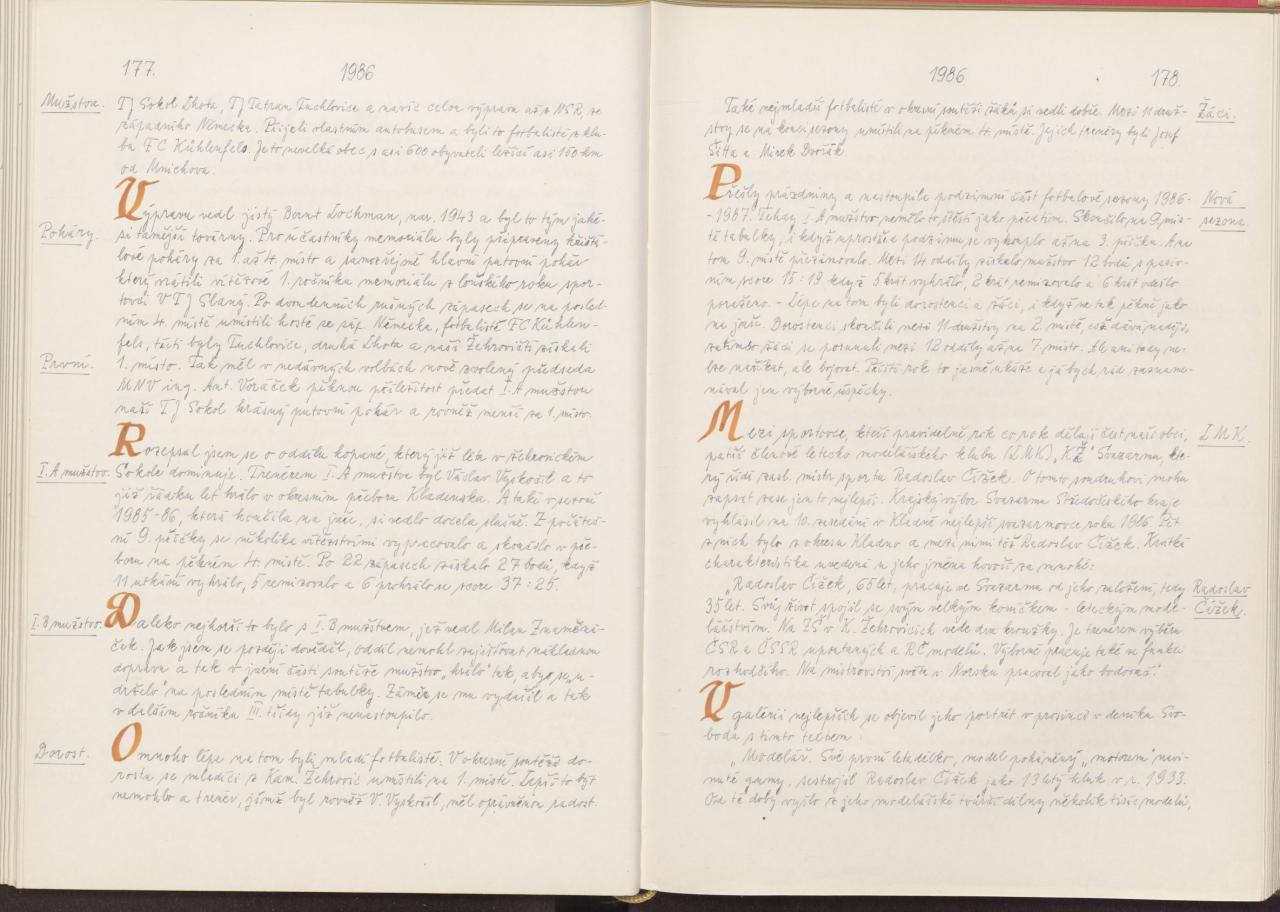 177.
1986
Mužstva.
TJ Sokol Lhota, TJ Tatran Tuchlovice a navíc celou výpravu až z NSR, ze
západního Německa. Přijeli vlastním autobusem a byli to fotbalisté z klu-
bu FC Kühlenfels. Je to nevelká obec s asi 600 obyvateli ležící asi 150 km
od Mnichova.
Výpravu vedl jistý Bernt Lochman, nar. 1943 a byl to tým jaké-
Poháry.
si tamější továrny. Pro účastníky memoriálu byly připraveny křišťá-
lové poháry za 1. až 4. místo a samozřejmě hlavní putovní pohár
který vrátili vítězové 1. ročníku memoriálu z loňského roku spor-
tovci VTJ Slaný. Po dvoudenních rušných zápasech se na posled-
ním 4. místě umístili hosté ze záp. Německa, fotbalisté FC Kühlen-
fels, třetí byly Tuchlovice, druhá Lhota a naši Žehrovičtí získali
První.
1. místo. Tak měl v nedávných volbách nově zvolený předseda
MNV ing. Ant. Voráček pěknou příležitost předat I. A mužstvu
naší TJ Sokol krásný putovní pohár a rovněž menší za 1. místo.
Rozepsal jsem se o oddílu kopané, který již léta v žehrovickém
I. A mužstvo.
Sokole dominuje. Trenérem I. A mužstva byl Václav Vyskočil a to
již řádku let hrálo v okresním přeboru Kladenska. A také v sezoně
1985-86, která končila na jaře, si vedlo docela slušně. Z počáteč-
ní 9. příčky se několika vítězstvími vypracovalo a skončilo v pře-
boru na pěkném 4. místě. Po 22 zápasech získalo 27 bodů, když
11 utkání vyhrálo, 5 remizovalo a 6 prohrálo se score 37 : 25.
I. B mužstvo.
Daleko nejhorší to bylo s I. B mužstvem, jež vedl Milan Znamení-
ček. Jak jsem se později dověděl, oddíl nemohl zajišťovat nákladnou
dopravu a tak v jarní části soutěže mužstvo „hrálo" tak, aby se „u-
drželo" na posledním místě tabulky. Záměr se mu vydařil a tak
v dalším ročníku III. třídy již nenastoupilo.
Dorost.
O mnoho lépe na tom byli mladí fotbalisté. V okresní soutěži do-
rostu se mladíci z Kam. Žehrovic umístili na 1. místě. Lepší to být
nemohlo a trenér, jímž byl rovněž V. Vyskočil, měl oprávněnou radost.
1986
178.
Také nejmladší fotbalisté v okresní soutěži žáků si vedli dobře. Mezi 11 druž-
Žáci.
stvy se na konci sezony umístili na pěkném 4. místě. Jejich trenéry byli Josef
Šitta a Mirek Dvořák.
Přešly prázdniny a nastoupila podzimní část fotbalové sezony 1986-
Nová
-1987. Tehdy I. A mužstvo nemělo to štěstí jako předtím. Skončilo na 9. mís-
sezona.
tě tabulky, i když uprostřed podzimu se vyhouplo až na 3. příčku. A na
tom 9. místě přezimovalo. Mezi 14 oddíly získalo mužstvo 12 bodů s pasiv-
ním score 15 : 19 když 5 krát vyhrálo, 2 krát remizovalo a 6 krát odešlo
poraženo. - Lépe na tom byli dorostenci a žáci, i když ne tak pěkně jako
na jaře. Dorostenci skončili mezi 11 družstvy na 2. místě, což dává naději,
zatímco žáci se posunuli mezi 12 oddíly až na 7. místo. Ale ani tady ne-
lze naříkat, ale bojovat. Příští rok to jasně ukáže a já bych rád zazname-
nával jen výborné úspěchy.
Mezi sportovce, kteří pravidelně rok co rok dělají čest naší obci,
LMK.
patří členové letecko modelářského klubu (LMK) „KŽ" Svazarmu, kte-
rý řídí zasl. mistr sportu Radoslav Čížek. O tomto soudruhovi mohu
zapsat zase jen to nejlepší. Krajský výbor Svazarmu Středočeského kraje
vyhlásil na 10. zasedání v Kladně nejlepší svazarmovce roku 1986. Pět
z nich bylo z okresu Kladno a mezi nimi též Radoslav Čížek. Krátká
charakteristika uvedená u jeho jména hovoří za mnohé:
„Radoslav Čížek, 65 let, pracuje ve Svazarmu od jeho založení, tedy
Radoslav
35 let. Svůj život spojil se svým velkým koníčkem - leteckým mode-
Čížek.
lářstvím. Na ZŠ v K. Žehrovicích vede dva kroužky. Je trenérem výběru
ČSR a ČSSR upoutaných a RC modelů. Výborně pracuje také ve funkci
rozhodčího. Na mistrovství světa v Norsku pracoval jako bodovač."
V galerii nejlepších se objevil jeho portrét v prosinci v deníku Svo-
boda s tímto textem:
„Modelář. Své první letadélko, model poháněný „motorem" navi-
nuté gumy, sestrojil Radoslav Čížek jako 13 letý kluk v r. 1933.
Od té doby vyšlo z jeho modelářské tvůrčí dílny několik tisíc modelů,